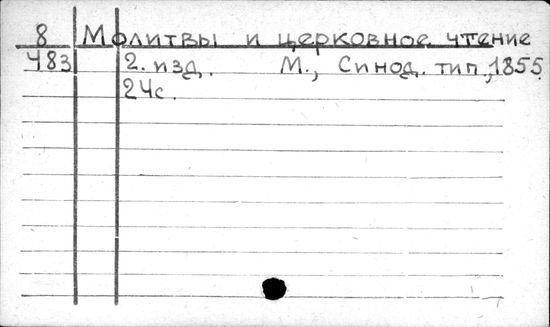 8 Молитвы и церковное чтение
483 2. изд. М., Синод. тип., 1855
24с.